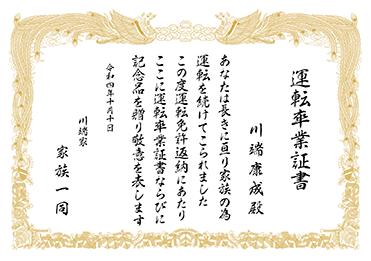 運転卒業証書
川緒康成殿
あなたは長きに亘り家族の為
運転を続けてこられました
この度運転免許返納にあたり
ここに運転卒業証書ならびに
記念品を贈り敬意を表します
令和四年十月十日
川緒家
家族一同